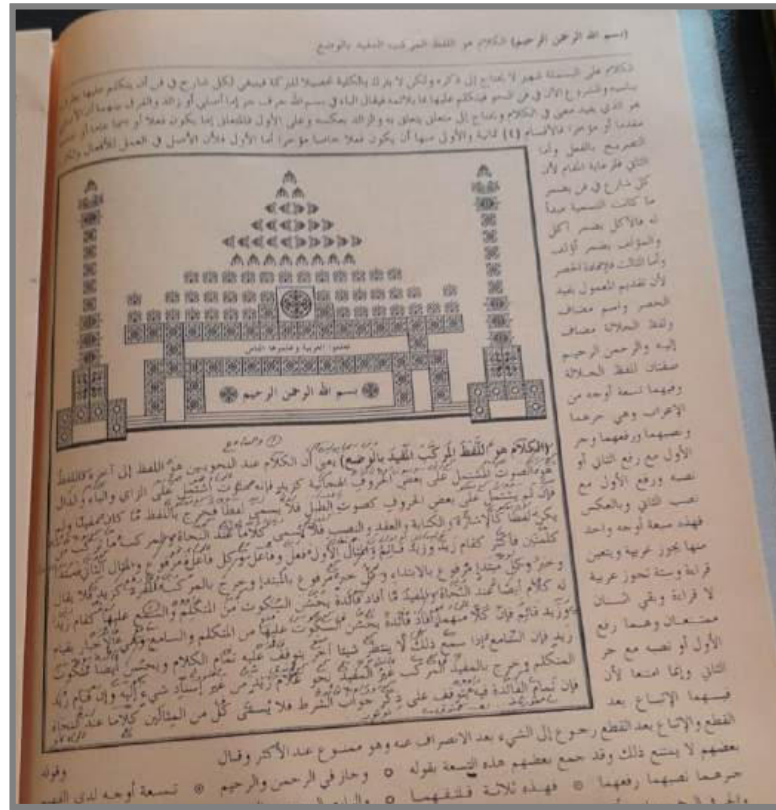 (بسم الله الرحمن الرحيم) الكلام هو اللفظ المركب المفيد بالوضع
الكلام على البسملة شهير لا يحتاج إلى ذكره ولكن لا يترك بالكلية تحصيلا للبركة فينبغي لكل شارع في فن أن يتكلم عليها بطرف
يناسبه والشروع الآن في فن النحو فيتكلم عليها بما يلائمه فيقال الباء في بسم الله حرف جر إما أصلي أو زائد والفرق بينهما أن الأصلي
هو الذي يفيد معنى في الكلام ويحتاج إلى متعلق يتعلق به والزائد بعكسه وعلى الأول فالمتعلق إما يكون فعلا أو اسما
مقدما أو مؤخرا فالأقسام (٤) ثمانية والأولى منها أن يكون فعلا خاصا مؤخرا أما الأول فلأن الأصل في العمل للأفعال
التصريح بالفعل وأما
الثاني فلرعاية المقام لأن
كل شارع في فن يضمر
ما كانت التسمية مبدأ
له فالآكل يضمر آكل
والمؤلف يضمر أؤلف
وأما الثالث فلإفادة الحصر
لأن تقديم المعمول يفيد
الحصر واسم مضاف
ولفظ الجلالة مضاف
إليه والرحمن الرحيم
صفتان للفظ الجلالة
وفيهما تسعة أوجه من
الإعراب وهي جرهما
ونصبهما ورفعهما وجر
الأول مع رفع الثاني أو
نصبه ورفع الأول مع
نصب الثاني وبالعكس
فهذه سبعة أوجه واحد
منها يجوز عربية ويتعين
قراءة وستة تجوز عربية
لا قراءة وبقي اثنان
ممتنعان وهما رفع
الأول أو نصبه مع جر
الثاني وإنما امتنعا لأن
فيهما الإتباع بعد
تعلموا العربية وعلموها الناس
بسم الله الرحمن الرحيم
(الكلام هو اللفظ المركب المفيد بالوضع) يعني أن الكلام عند النحويين هو اللفظ إلى آخره فاللفظ
هو الصوت المشتمل على بعض الحروف الهجائية كزيد فإنه صوت اشتمل على الزاي والياء والدال
فإن لم يشتمل على بعض الحروف كصوت الطبل فلا يسمى لفظا فخرج باللفظ ما كان مفيدا ولم
يكن لفظا كالإشارة والكتابة والعقد والنصب فلا تسمى كلاما عند النحاة والمركب ما تركب من
كلمتين فأكثر كقام زيد وزيد قائم والمثال الأول فعل وفاعل وكل فاعل مرفوع والمثال الثاني مبتدأ
وخبر وكل مبتدإ مرفوع بالابتداء وكل خبر مرفوع بالمبتدإ وخرج بالمركب المفرد كزيد فلا يقال
له كلام أيضا عند النحاة والمفيد ما أفاد فائدة يحسن السكوت من المتكلم والسامع عليها كقام زيد
وزيد قائم فإن كلا منهما أفاد فائدة يحسن السكوت عليها من المتكلم والسامع وهي الإخبار بقيام
زيد فإن السامع إذا سمع ذلك لا ينتظر شيئا آخر يتوقف عليه تمام الكلام ويحسن أيضا سكوت
المتكلم وخرج بالمفيد المركب غير المفيد نحو غلام زيد من غير إسناد شيء إليه وإن قام زيد
فإن تمام الفائدة فيه يتوقف على ذكر جواب الشرط فلا يسمى كل من المثالين كلاما عند النحاة
القطع والإتباع بعد القطع رجوع إلى الشيء بعد الانصراف عنه وهو ممنوع عند الأكثر وقال
بعضهم لا يمتنع ذلك وقد جمع بعضهم هذه التسعة بقوله وجاز في الرحمن والرحيم تسعة أوجه لدى الفهيم وقوله
جرهما نصبهما رفعهما فهذه ثلاثة